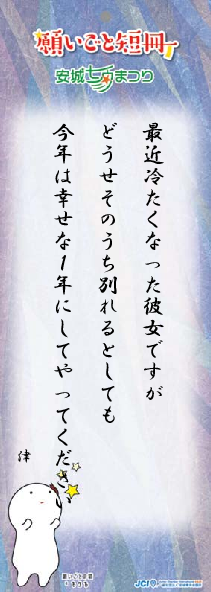 願いごと短冊
安城七夕まつり
最近冷たくなった彼女ですが
どうせそのうち別れるとしても
今年は幸せな1年にしてやってください
津
願いごと短冊
JCI